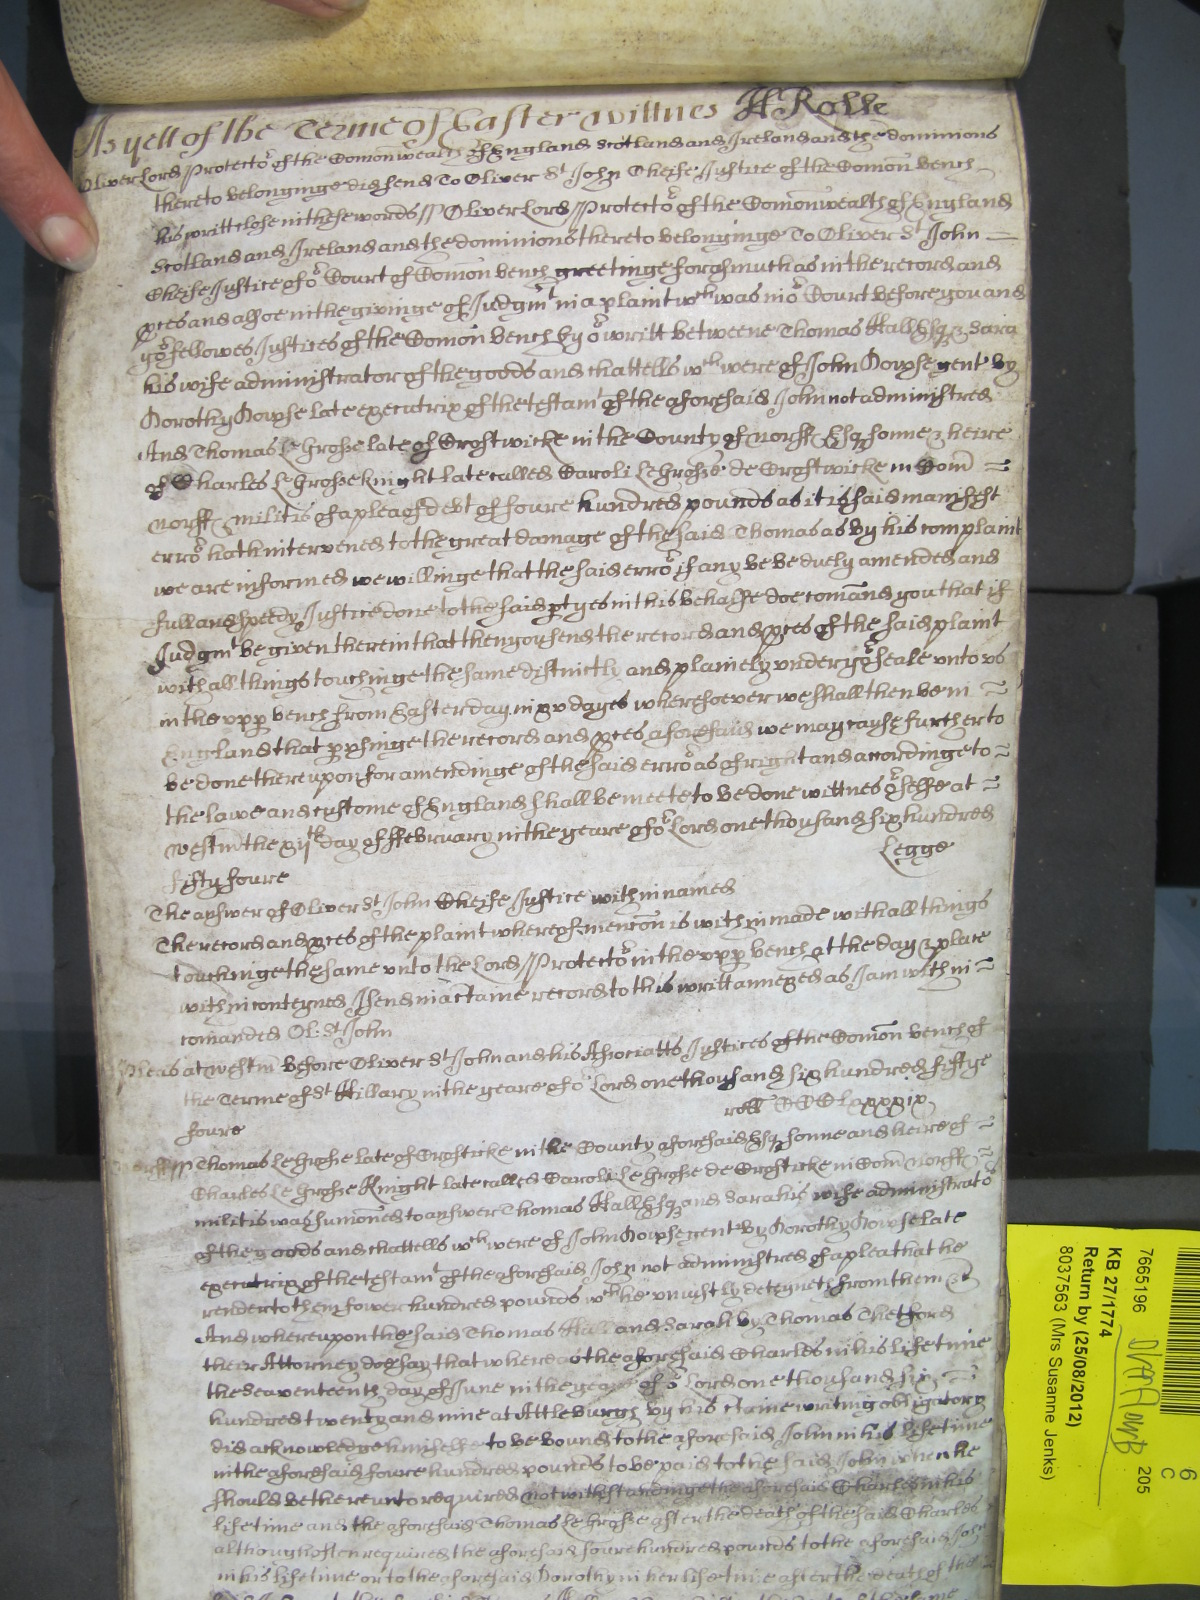 As yett of the Terme of Easter wittnes H Rolle
Oliver Lord Protector of the Comonwealth of England Scotland and Ireland and the dominions
thereto belonginge did send To Oliver St John Cheife Justice of the Comon bench
his writt close in these words // Oliver Lord Protector of the Comonwealth of England
Scotland and Ireland and the dominions thereto belonginge To Oliver St John
Cheife Justice of or Court of Comon bench greetinge forasmuch as in the record and
pces and alsoe in the givinge of Judgmt in a plaint wch was in or Court before you and
yor fellowes Justices of the Comon bench by or writt betweene Thomas Hall Esq & Sara
his wife administrator of the goods and chattells wch were of John Dowse gent by
Dorothy Dowse late executrix of the testamt of the aforesaid John not administred
And Thomas Le Grosse late of Crostwicke in the County of Norff Esq sonne & heire
of Charles Le Grosse Knight late called Caroli Le Grosse de Crostwicke in Com
Norff militis of a plea of debt of foure hundred pounds as it is said manifest
error hath intervened to the great damage of the said Thomas as by his complaint
we are informed we willinge that the said error if any be be duely amended and
full and speedy Justice done to the said ptyes in this behalfe doe comand you that if
Judgmt be given therein that then you send the record and pces of the said plaint
with all things touchinge the same distinctly and plainely under yor seale unto us
in the upp bench from Easter day in xv dayes wheresoever we shall then be in
England that pusinge the record and pces aforesaid we may cause further to
be done thereupon for amendinge of the said error as of right and accordinge to
the lawe and custome of England shall be meete to be done wittnes or selfe at
Westm the xijth day of ffebruary in the yeare of or Lord one thousand six hundred
fifty foure
Legge
The answer of Oliver St John Cheife Justice within named
The record and pces of the plaint whereof mencon is within made with all things
touchinge the same unto the Lord Protector in the upp bench at the day & place
within conteyned I send in a ctaine record to this writt annexed as I am within
comanded Ol: St John
Pleas at Westm before Oliver St John and his Associatts Justices of the Comon bench of
the Terme of St Hillary in the yeare of or Lord one thousand six hundred fiftye
foure
roll CCCCLxxxix
Norff // Thomas Le Grosse late of Crosticke in the County aforesaid Esq sonne and heire of
Charles Le Grosse Knight late called Caroli Le Grosse de Crosticke in Com Norff
militis was sumoned to answer Thomas Hall Esq and Sara his wife administrator
of the goods and chattells wch were of John Dowse gent by Dorothy Dowse late
executrix of the testamt of the aforesaid John not administred of a plea that he
render to them fower hundred pounds wch he unjustly deteyneth from them &c
And whereupon the said Thomas Hall and Sarah by Thomas Thetford
their Attorney doe say that whereas the aforesaid Charles in his life time
the seaventeenth day of June in the yeare of or Lord one thousand six
hundred twenty and nine at Attleburgh by his ctaine writing obligatory
did acknowledge himselfe to be bound to the aforesaid John in his life time
in the aforesaid foure hundred pounds to be paid to the said John when he
should be thereunto required notwithstandinge the aforesaid Charles in his
life time and the aforesaid Thomas Le Grosse after the death of the said Charles
although often required the aforesaid foure hundred pounds to the aforesaid John
in his life time or to the aforesaid Dorothy in her life time after the death of the
7665196
KB 27/1774
Return by (25/08/2012)
8037563 (Mrs Susanne Jenks)
205
6
C